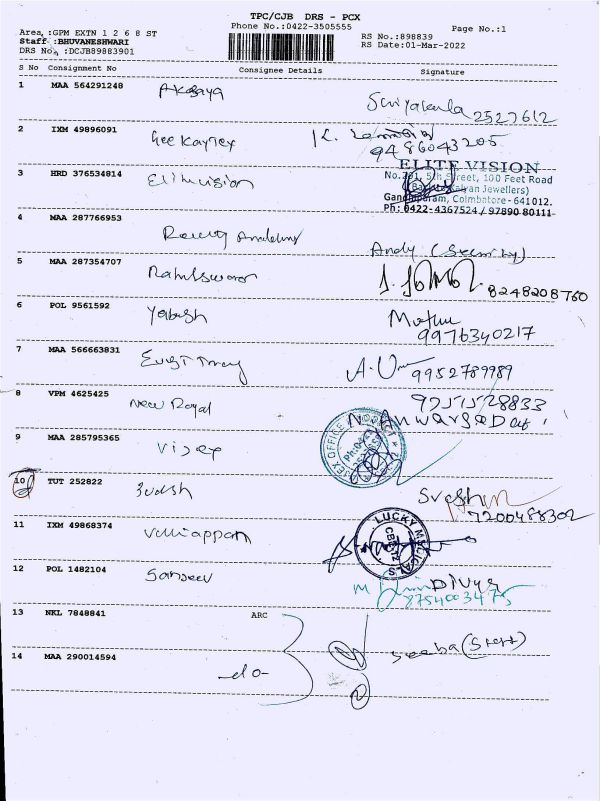 TPC/CJB DRS - PCX
Phone No.:0422-3505555
Page No.:1
Area :GPM EXTN 1 2 6 8 ST
Staff :BHUVANESHWARI
DRS No. :DCJB89883901
RS No.:898839
RS Date:01-Mar-2022
S No Consignment No Consignee Details Signature
1 MAA 564291248 Akshaya
2527612
2 IXM 49896091 Gee Kaytex K.
9486043205
3 HRD 376534814 Elitevision
ELITE VISION
No.291, 5th Street, 100 Feet Road
Kalyan Jewellers)
Gandhipuram, Coimbatore - 641012.
Ph: 0422-4367524 / 97890 80111
4 MAA 287766953
Andy (Security)
5 MAA 287354707
8248208760
6 POL 9561592 Muthu
9976340217
7 MAA 566663831 A.
9952789989
8 VPM 4625425 New Royal 9751528833
N. Anwar
9 MAA 285795365 Vijay
OFFICE
10 TUT 252822
7200488302
11 IXM 49868374 Valliappan
LUCKY
CBE-12
12 POL 1482104 Sanjeev Divya
8754003475
13 NKL 7848841 ARC
(Staff)
14 MAA 290014594 -do-